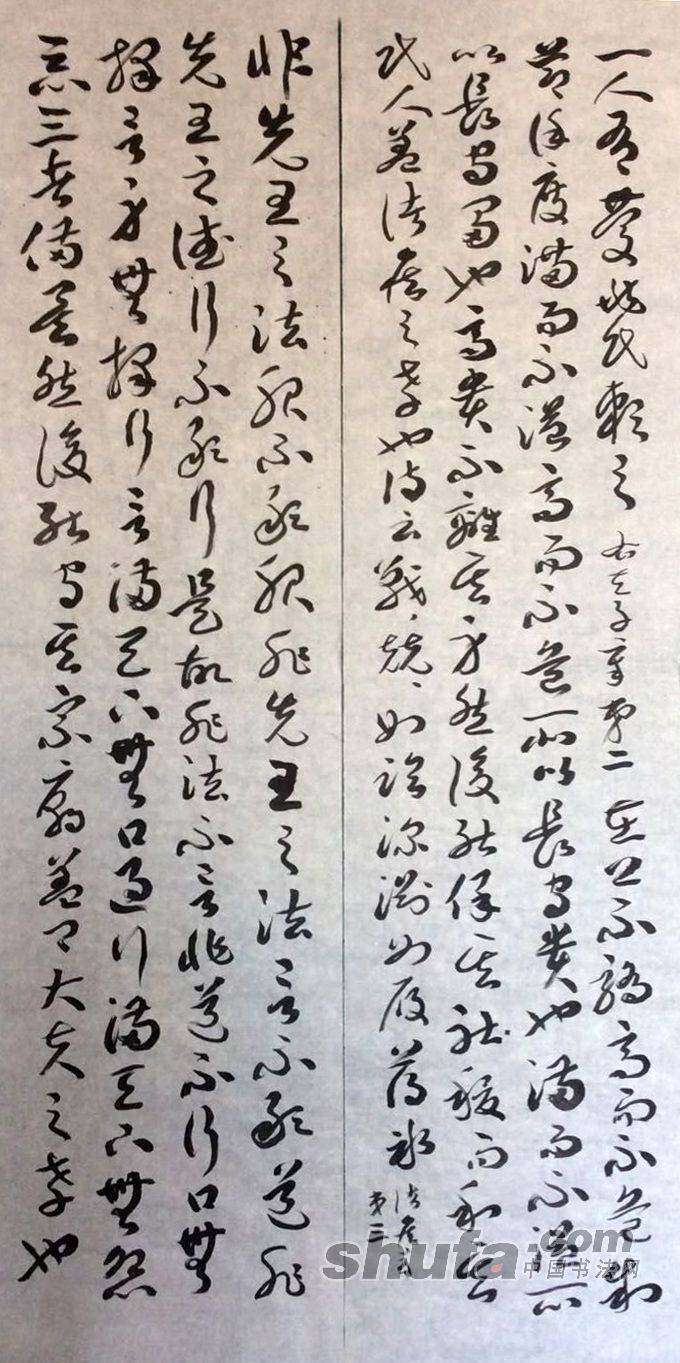 一人有慶兆民賴之 右天子章第二 在上不驕高而不危制
節謹度滿而不溢高而不危所以長守貴也滿而不溢所
以長守富也富貴不離其身然後能保其社稷而和其
民人蓋諸侯之孝也詩云戰〻兢〻如臨深淵如履薄冰 諸侯章
第三
非先王之法服不敢服非先王之法言不敢道非
先王之德行不敢行是故非法不言非道不行口無
擇言身無擇行言滿天下無口過行滿天下無怨
惡三者備矣然後能守其宗廟蓋卿大夫之孝也
shufa.com
中国书法网